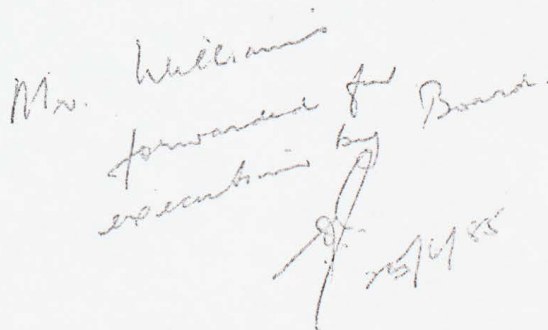 Mr. Williams
forwarded for
execution by Board.
25/6/85